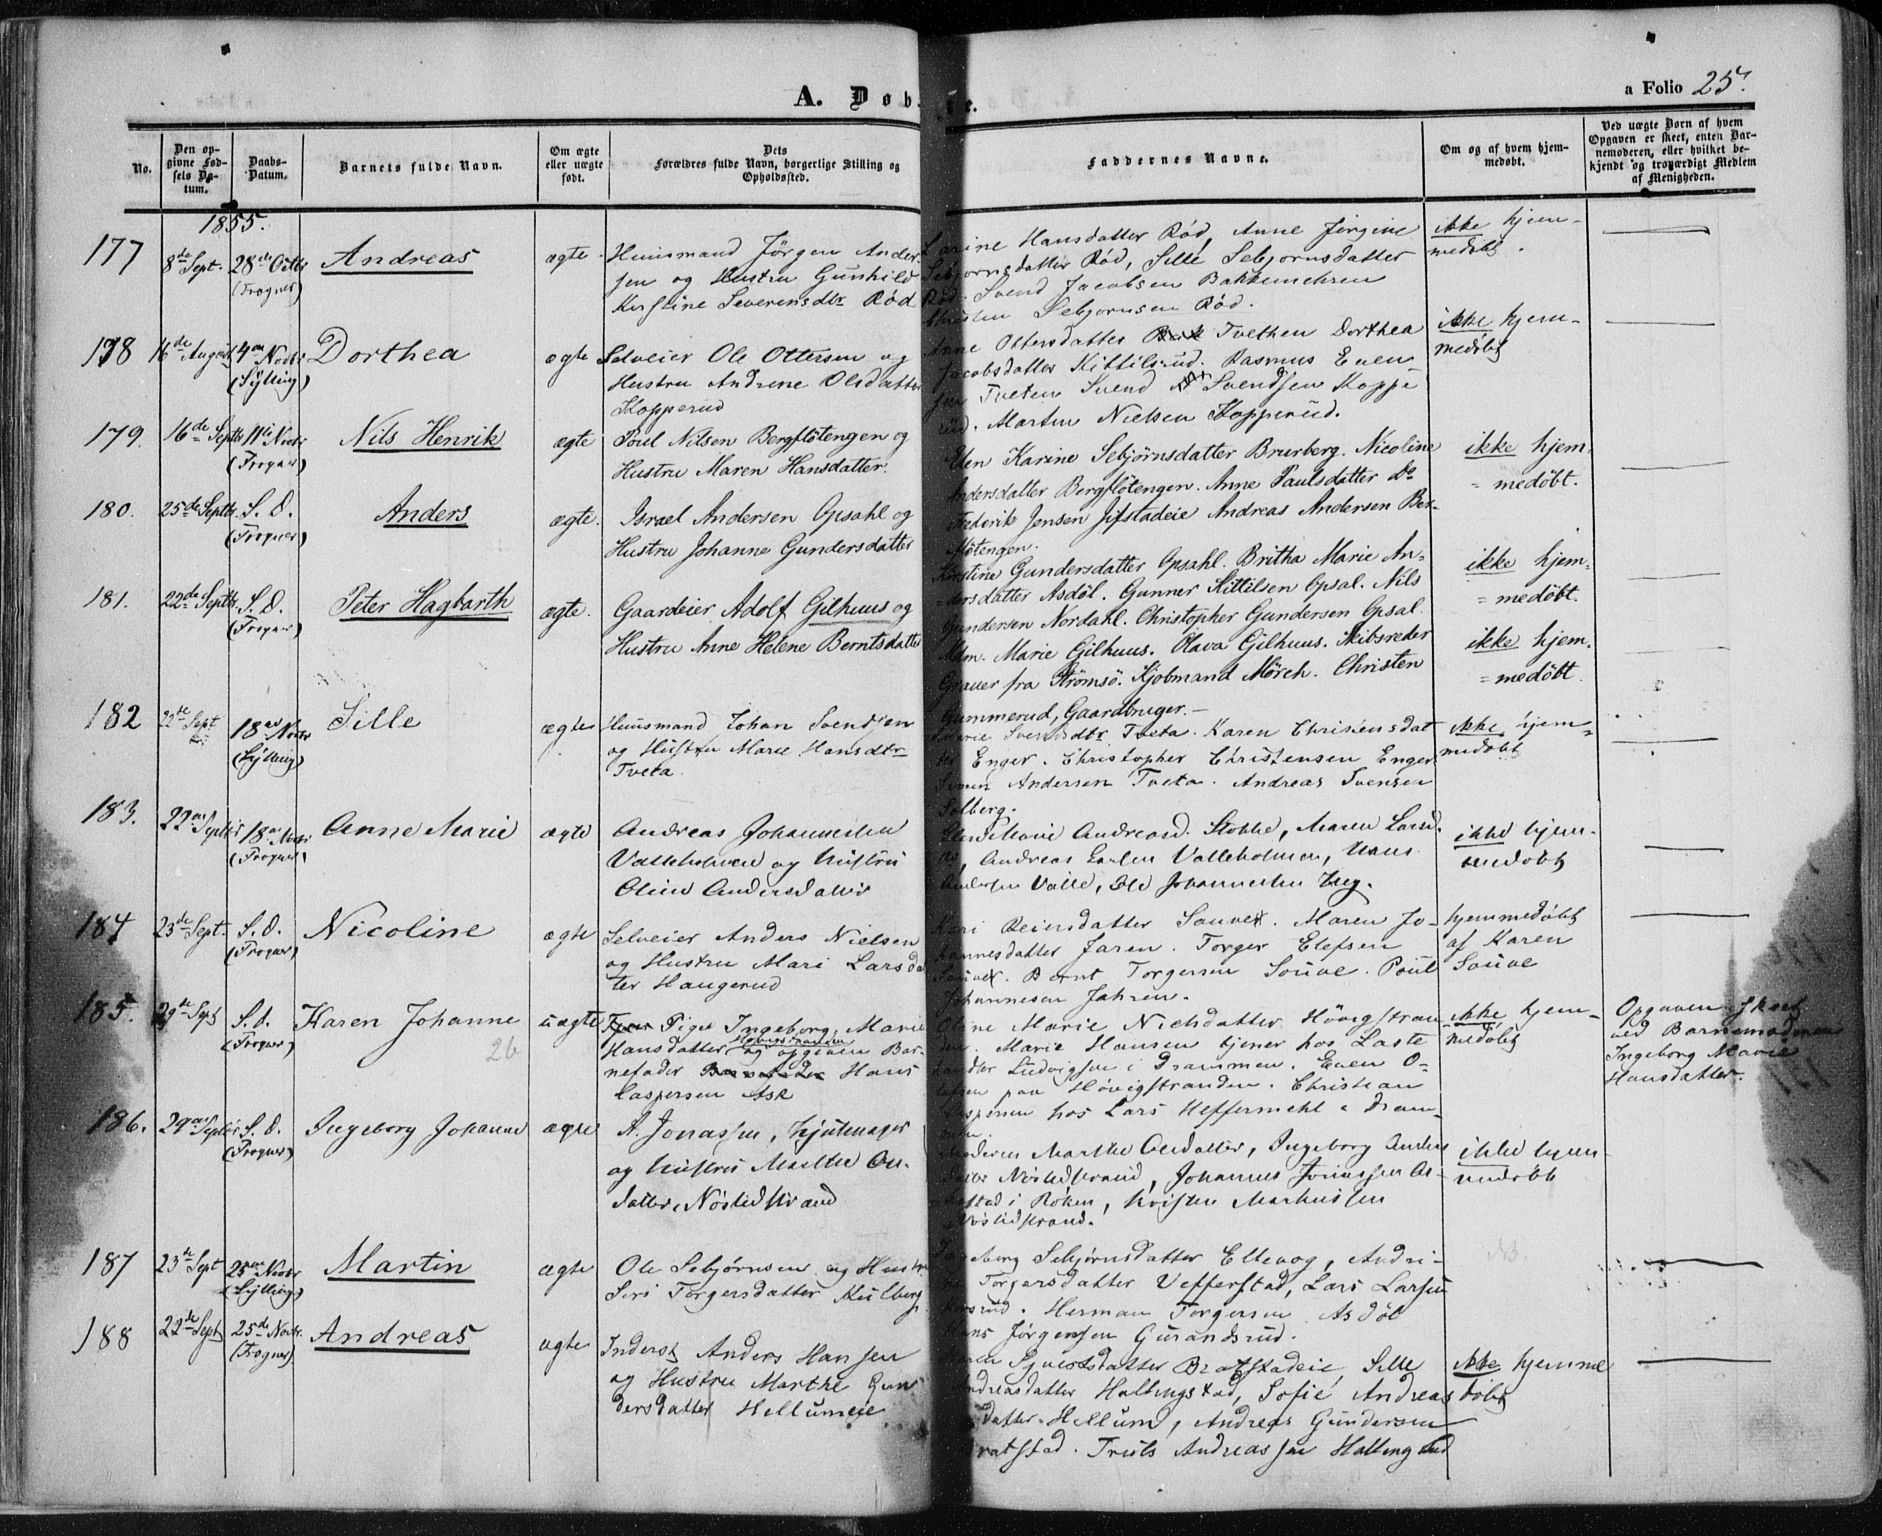 A. Døb
a Folio 25.
No.
Den opgivne Fødsels Datum.
Daabs-Datum.
Barnets fulde Navn.
Om ægte eller uægte født.
Dets Forældres fulde Navn, borgerlige Stilling og Opholdssted.
Faddernes Navne.
Om og af hvem hjemmedøbt.
Ved uægte Børn af hvem Opgaven er skeet, enten Barnemoderen, eller hvilket bekjendt og troværdigt Medlem af Menigheden.
1855.
177 8de Sept. 28de Octbr (Frogner) Andreas ægte.
Huusmand Jørgen Ander
sen og Hustru Gunhild
Kirstine Severensdtr Rød
Hansdatter Rød, Anne Jørgine
Sebjørnsdatter Rød, Sille Sebjornsdatter
Rød. Svend Jacobsen Bakkenehren
Sebjornsen Rød.
ikke hjem-
medøbt.
178 16de August 4de Novbr (Sylling) Dorthea ægte
Selveier Ole Ottersen og
Hustru Andrine Olsdatter
Kopperud
Anne Ottersdatter Tvethen Dorthea
Jacobsdatter Kittilsrud. Rasmus Even
sen Tveten Svend Svendsen Koppe
rud. Martin Nielsen Kopperud.
ikke hjem-
medøbt
179. 16de Septbr 11te Novbr (Frogner) Nils Henrik ægte
Poul Nilsen Bergflötengen og
Hustru Maren Hansdatter.
Elen Karine Sebjörnsdatter Brurberg. Nicoline
Andersdatter Bergflötengen. Anne Paulsdatter Do
Frederik Jensen Jifstadeie Andreas Andersen Ber-
flötengen.
ikke hjem-
= medöbt.
180. 25de Septbr. S. D. (Frogner) Anders ægte.
Israel Andersen Opsahl og
Hustru Johanne Gundersdatter
Kirstine Gundersdatter Opsahl. Britha Marie An-
dersdatter Asdöl. Gunner Kittilsen Opsal. Nils
Gundersen Nordahl. Christopher Gundersen Opsal.
ikke hjem-
= medöbt.
181. 22de Septbr. S. D. (Frogner) Peter Hagbarth ægte.
Gaardeier Adolf Gilhuus og
Hustru Anne Helene Berntsdatter
Mdm. Marie Gilhuus. Olava Gilhuus. Skibsreder
Grauer fra Strömsö. Kjöbmand Mörch. Christen
Gummerud, Gaardbruger.-
ikke hjem-
= medöbt.
182 22de Sept 18de Novbr (Sylling) Sille ægte
Huusmand Johan Svendsen
og Hustru Marie Hansdtr
Tveta
Svendsdtr Tveta. Karen Christensdat
ter Enger. Christopher Christensen Enger.
Simen Andersen Tveta. Andreas Svensen
Solberg.
ikke hjem=
medøbt
183. 22de Septbr 18de Novbr (Frogner) Anne Marie ægte
Andreas Johannessen
Valleholmen og Hustru
Oline Andersdatter
Marie Andreasd. Stokke, Maren Larsd.
Andreas Valleholmen, Hans
Andersen Valle, Ole Johannesen
ikke hjem-
medøbt
184 23de Sept. S. D. (Frogner) Nicoline ægte
Selveier Anders Nielsen
og Hustru Mari Larsdat
ter Haugerud
Kari Reiersdatter Sauve. Maren Jo-
hannesdatter Jaren. Torger Elefsen
Sauve. Bernt Torgersen Souve. Poul
Johannesen Jahren.
hjemmedøbt
af Karen
Souve
185. 29de Sept S. D. (Frogner) Karen Johanne uægte
26
Pige Ingeborg Marie
Hansdatter Høvigstranden og opgiven Bar-
nefader Hans
Caspersen Ask
Oline Marie Nielsdatter Hövigstran
den. Marie Hansen tjener hos Laste
handler Ludvigsen i Drammen. Even O-
lefsen paa Høvigstranden. Christian
Caspersen hos Lars Heffermehl i Dram-
men.
ikke hjem-
medøbt
Opgaven skeet
ved Barnemoderen
Ingeborg Marie
Hansdatter.
186. 29de Septbr S. D. (Frogner) Ingeborg Johanne ægte
A. Jonassen, Hjulmager
og Hustru Marthe Ols-
datter, Nöstedstrand
Moderen Marthe Olsdatter, Ingeborg Anders
datter Nöstedstrand, Johannes Jonassen
i Röken, Kristen Markussen
Nöstedstrand.
ikke hjem-
medøbt
187 23de Sept 25de Novbr (Sylling) Martin ægte
Ole Sebjørnsen og Hustr
Siri Torgersdatter Kulberg
Ingeborg Sebjørnsdatter Ellevog, Andri-
ne Torgersdatter Vefferstad, Lars Larsen
Herman Torgersen Asdöl
Hans Jørgensen Gurandsrud.
188 22de Sept 25de Novbr. (Frogner) Andreas ægte
Inderst Anders Hansen
og Hustru Marthe Gun
dersdatter Hellumeie
Sjvertsdatter Bratstadeie, Sille
Andreasdatter Hallingstad, Sofie Andreas
datter Hellum, Andreas Gundersen
Bratstad. Truls Andreassen Halling stad
ikke hjemme
døbt